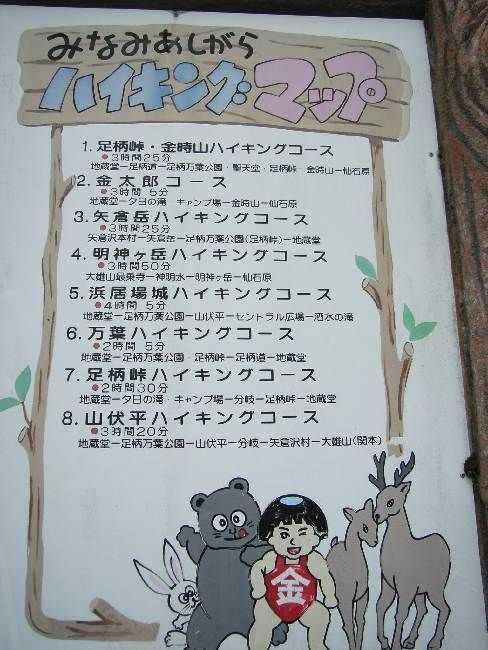 みなみあしがら
ハイキングマップ
1. 足柄峠・金時山ハイキングコース
●3時間25分
地蔵堂ー足柄道ー足柄万葉公園・聖天堂・足柄峠ー金時山ー仙石原
2. 金太郎コース
●3時間 5分
地蔵堂ー夕日の滝・キャンプ場ー金時山ー仙石原
3. 矢倉岳ハイキングコース
●3時間25分
矢倉沢本村ー矢倉岳ー足柄万葉公園(足柄峠)ー地蔵堂
4. 明神ヶ岳ハイキングコース
●3時間50分
大雄山最乗寺ー神明水ー明神ヶ岳ー仙石原
5. 浜居場城ハイキングコース
●4時間 5分
地蔵堂ー足柄万葉公園ー山伏平ーセントラル広場ー洒水の滝
6. 万葉ハイキングコース
●2時間 5分
地蔵堂ー足柄万葉公園・足柄峠ー足柄道ー地蔵堂
7. 足柄峠ハイキングコース
●2時間30分
地蔵堂ー夕日の滝・キャンプ場ー分岐ー足柄峠ー地蔵堂
8. 山伏平ハイキングコース
●3時間20分
地蔵堂ー足柄万葉公園ー山伏平ー分岐ー矢倉沢村ー大雄山(関本)
金